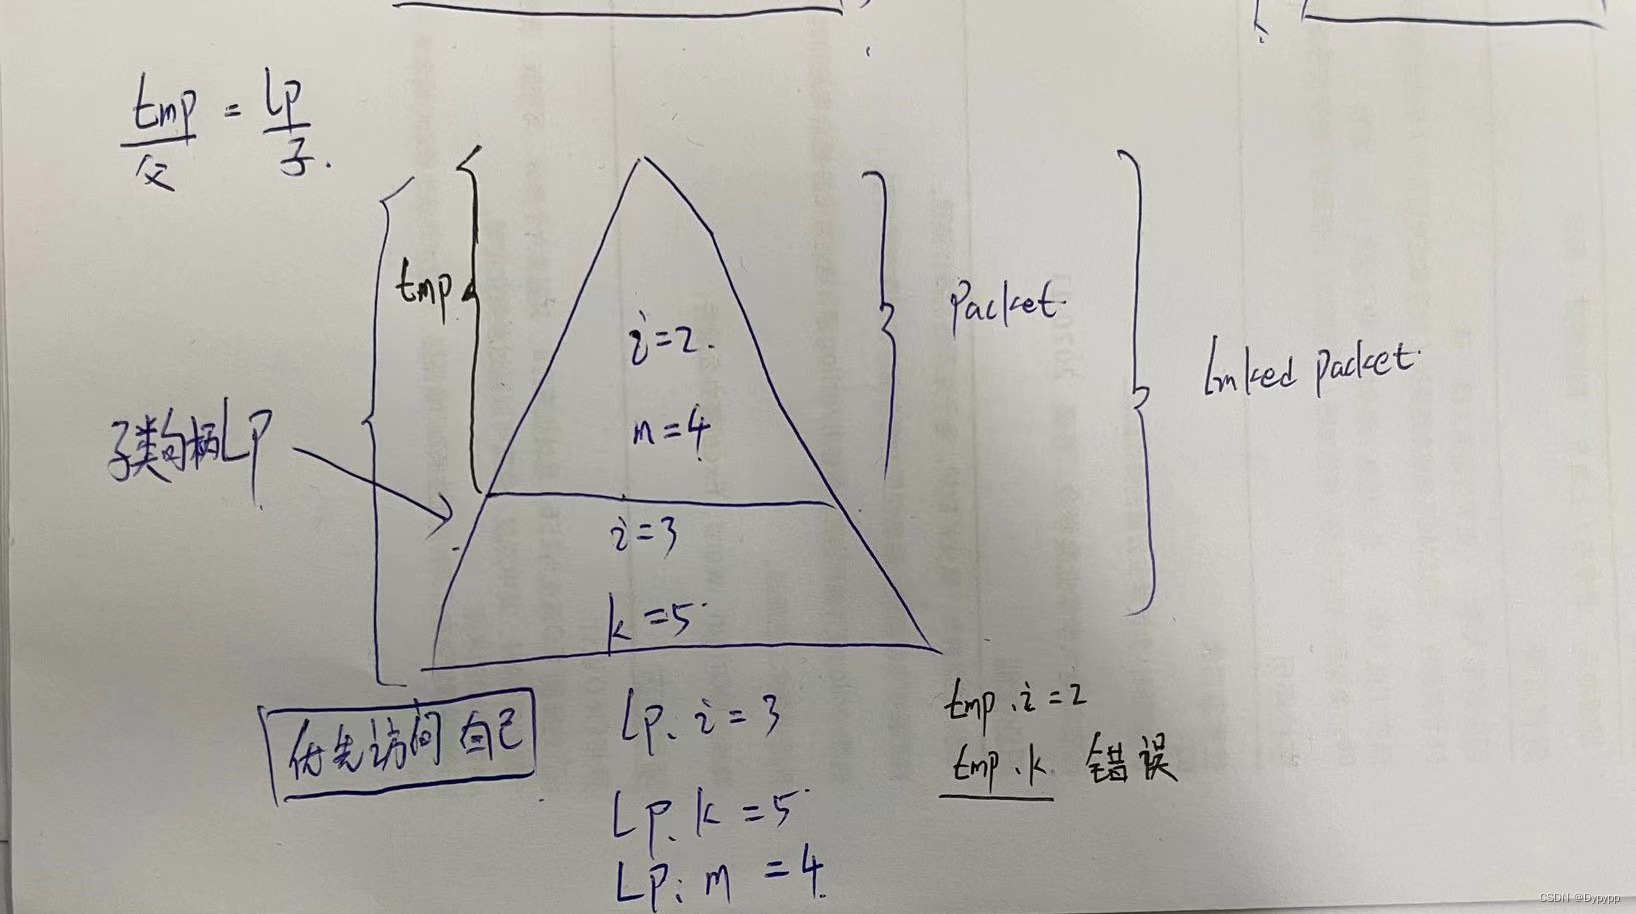 tmp = LP
父 子.
tmp
i=2.
m=4
Packet.
Linked Packet.
子类句柄LP
i=3
k=5.
优先访问自己
LP.i=3
LP.k=5
LP.m=4.
tmp.i=2
tmp.k. 错误
CSDN @Dypypp